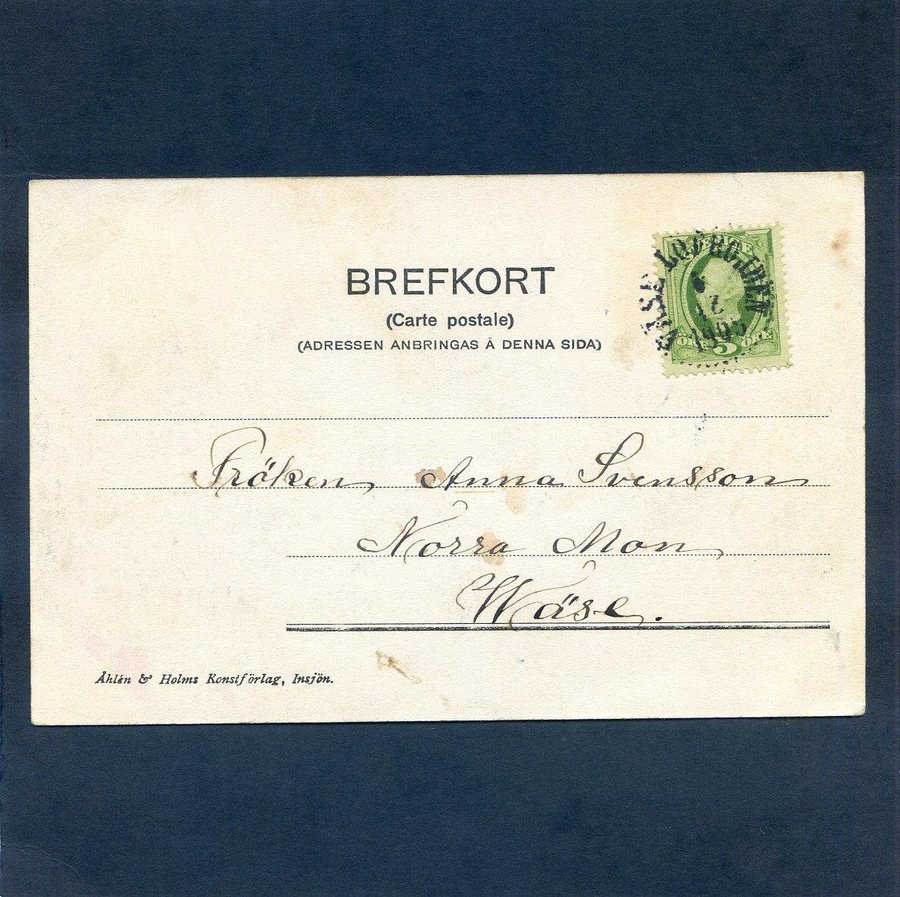 BREFKORT
(Carte postale)
(ADRESSEN ANBRINGAS Å DENNA SIDA)
5 ÖRE
Fröken Anna Svensson
Norra Mon
Wäse.
Åhlén & Holms Konstförlag, Insjön.